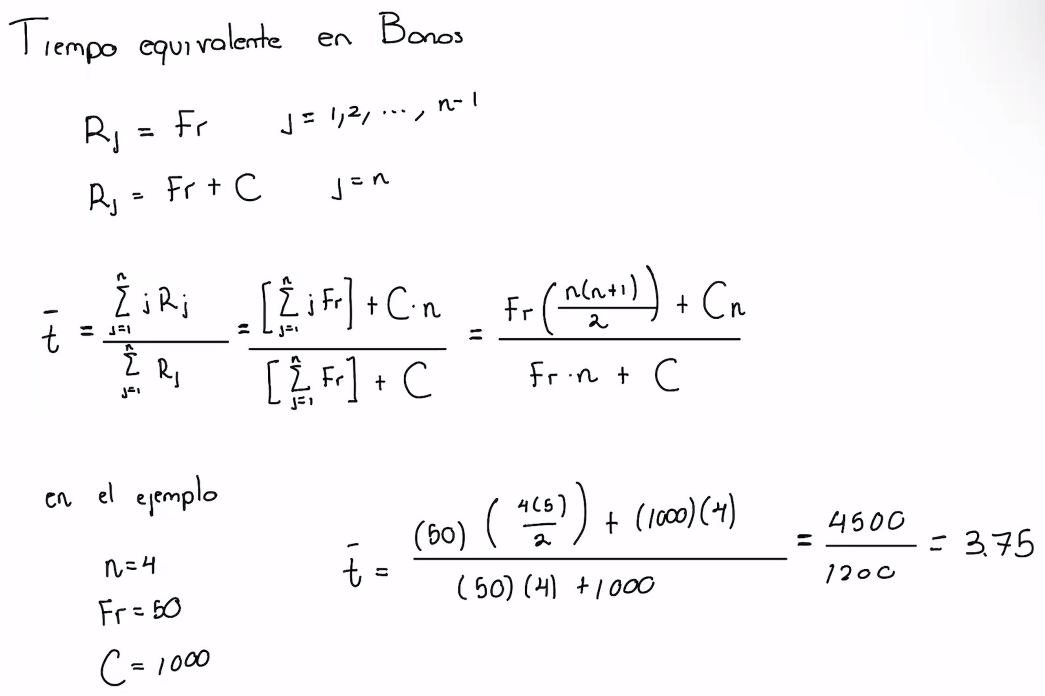 Tiempo equivalente en Bonos
R_j = Fr    j = 1,2, ..., n-1
R_j = Fr + C    j = n
t̄ = (∑_{j=1}^{n} j R_j) / (∑_{j=1}^{n} R_j) = ([∑_{j=1}^{n} j Fr] + C·n) / ([∑_{j=1}^{n} Fr] + C) = (Fr (n(n+1)/2) + Cn) / (Fr·n + C)
en el ejemplo
n=4
Fr = 50
C = 1000
t̄ = ((50) (4(5)/2) + (1000)(4)) / ((50)(4) + 1000) = 4500/1200 = 3.75